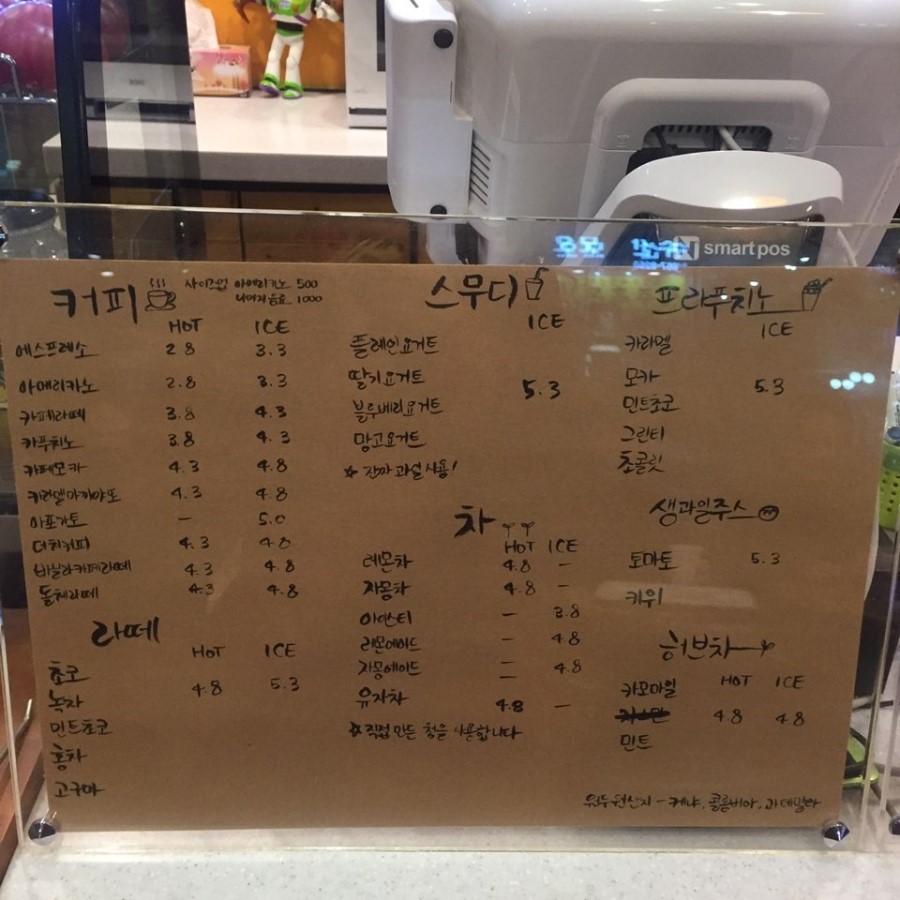 smartpos
커피
사이즈업 아메리카노 500
나머지음료 1000
HOT ICE
에스프레소 2.8 3.3
아메리카노 2.8 3.3
카페라떼 3.8 4.3
카푸치노 3.8 4.3
카페모카 4.3 4.8
카라멜마끼야또 4.3 4.8
아포가토 – 5.0
더치커피 4.3 4.8
바닐라카페라떼 4.3 4.8
돌체라떼 4.3 4.8
라떼
HOT ICE
초코
녹차 4.8 5.3
민트초코
홍차
고구마
스무디
ICE
플레인요거트
딸기요거트 5.3
블루베리요거트
망고요거트
☆ 진짜 과일 사용!
차
HOT ICE
레몬차 4.8 –
자몽차 4.8 –
아이스티 – 3.8
레몬에이드 – 4.8
자몽에이드 – 4.8
유자차 4.8 –
☆ 직접 만든 청을 사용합니다
프라푸치노
ICE
카라멜
모카 5.3
민트초코
그린티
초콜릿
생과일주스
토마토 5.3
키위
허브차
HOT ICE
카모마일
자스민 4.8 4.8
민트
원두원산지 - 케냐, 콜롬비아, 과테말라